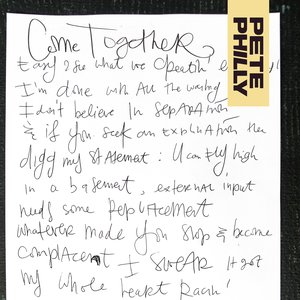 Come Together
PETE
PHILLY
Easy 2 see what we
I'm done with all the wasting
I don't believe in separation
& if you seek an explanation then
digg my statement: U can fly high
in a basement, external input
needs some replacement
whatever made you stop & become
complacent I swear it got
my whole heart racin'